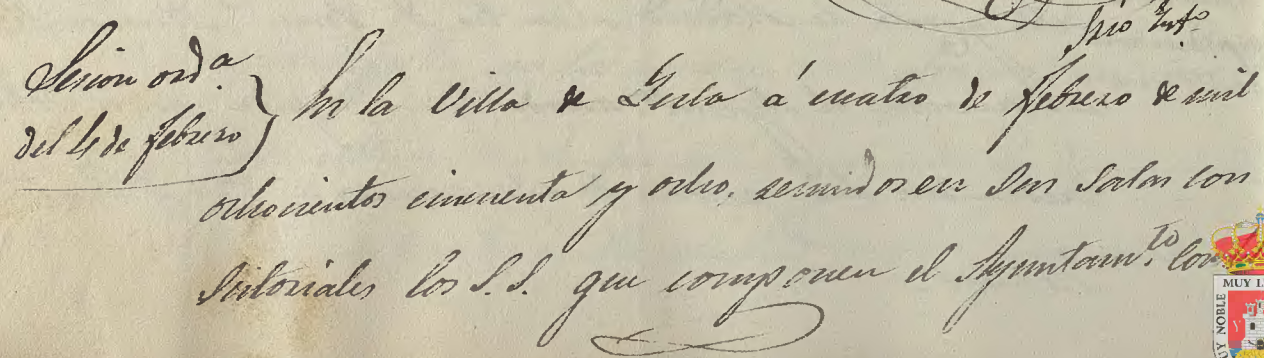 Srio Int.º
Sesion ord.ª
del 4 de febrero
En la Villa de Yecla á cuatro de febrero de mil
ochocientos cincuenta y ocho, reunidos en Sus Salas con
sistoriales los S.S. que componen el Ayuntam.to
MUY NOBLE
MUY L